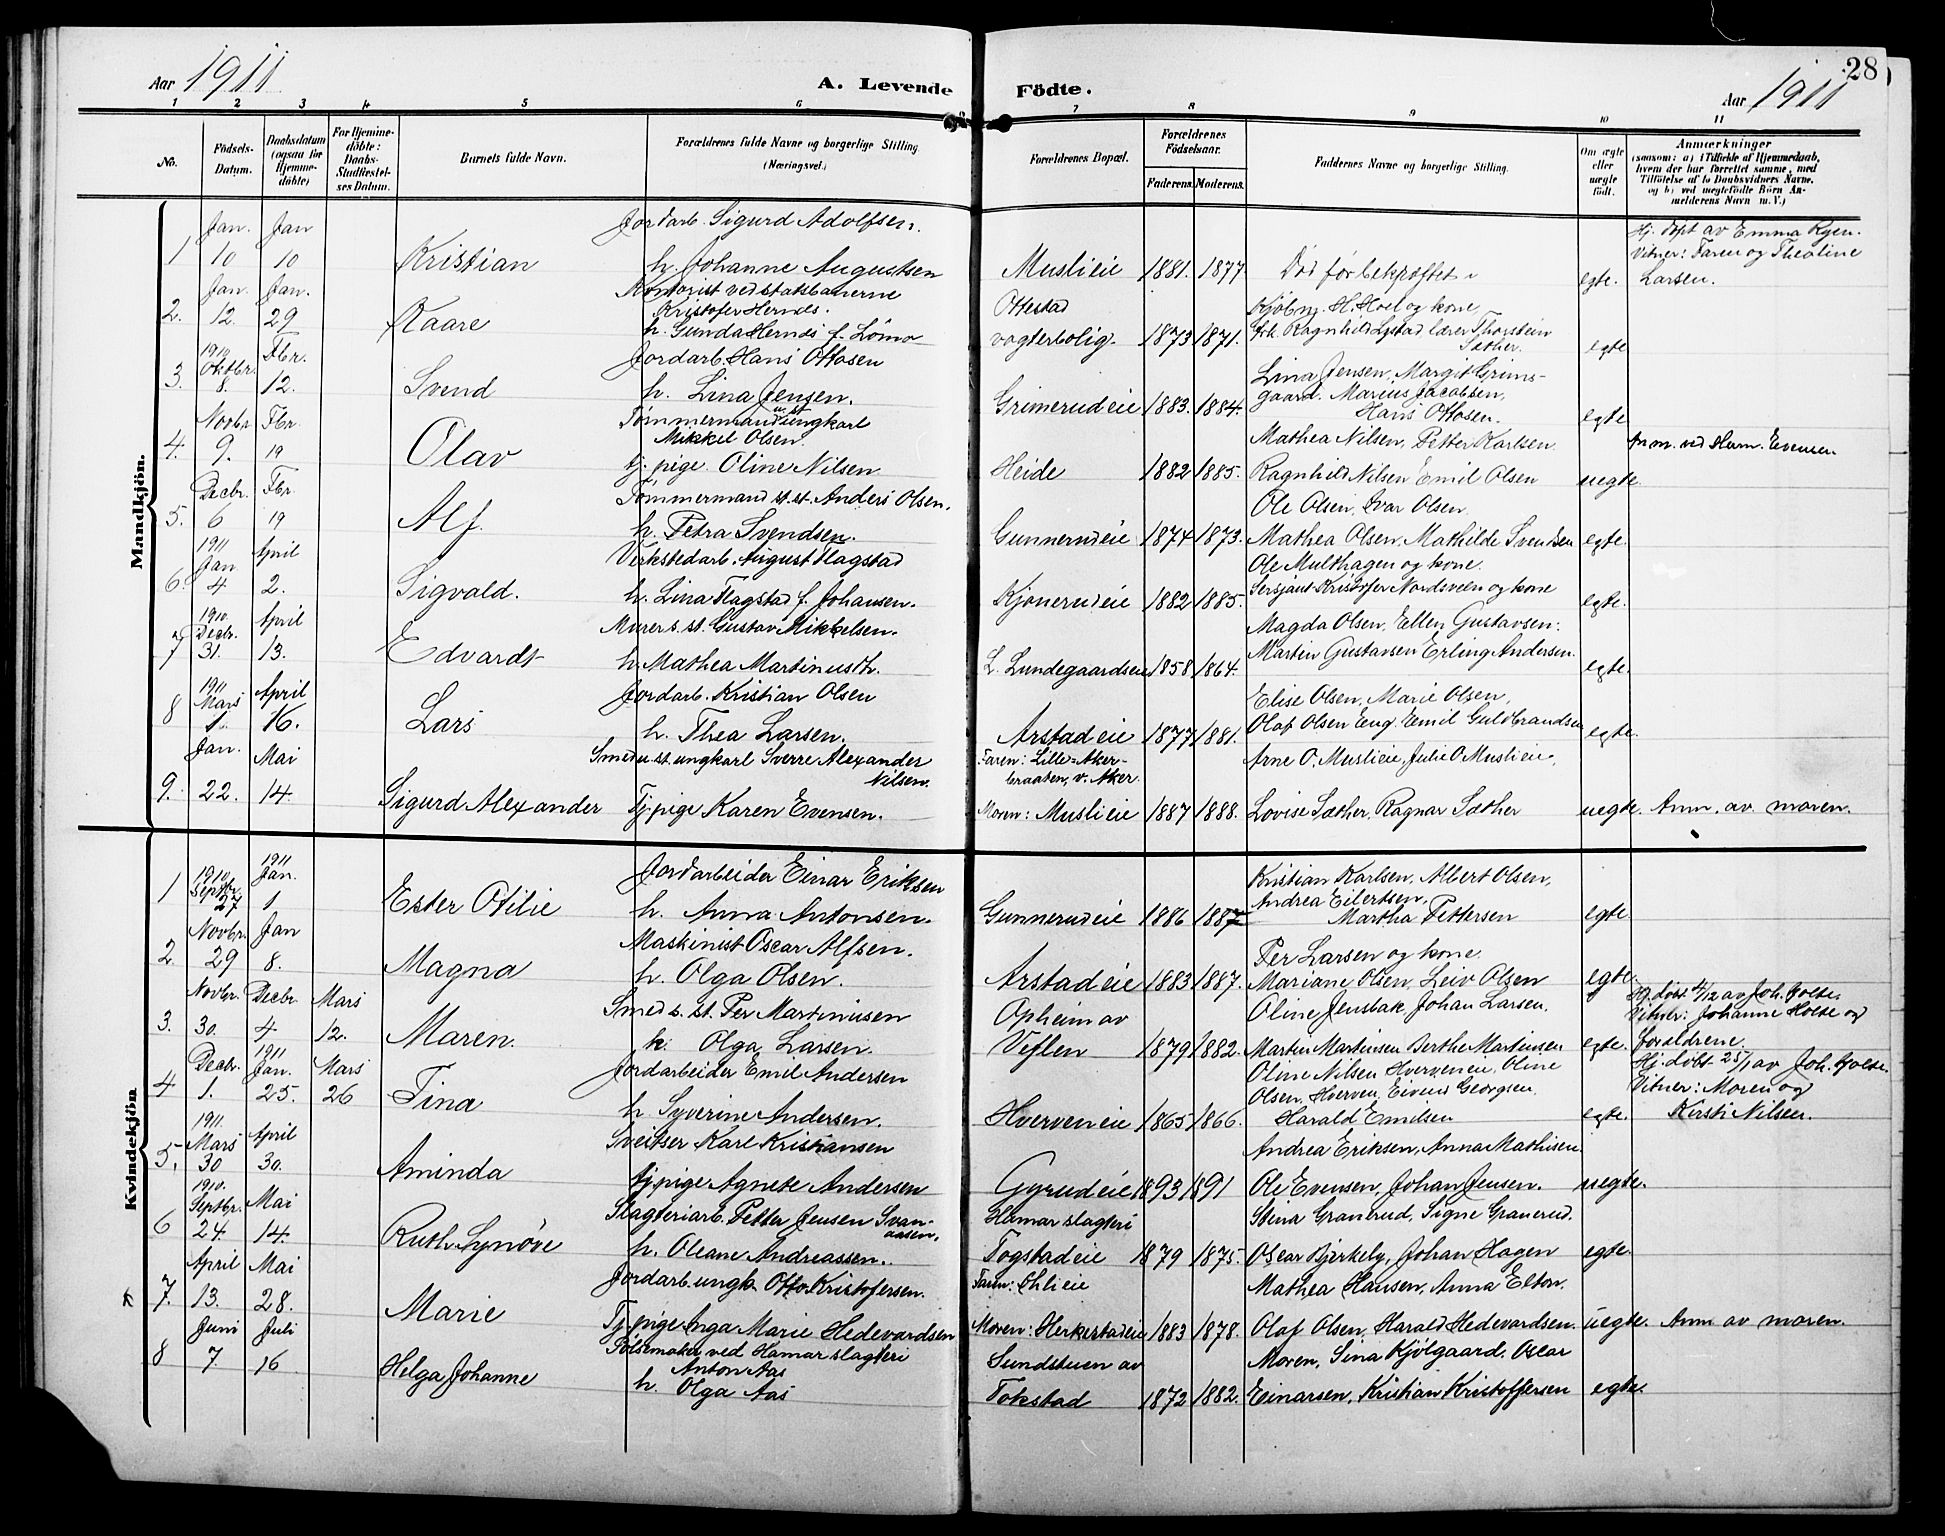 28
Aar 1911
A. Levende Födte.
Aar 1911
1 2 3 4 5 6 7 8 9 10 11
No.
Födsels-
Datum.
Daabsdatum
(ogsaa for
Hjemme-
döbte)
For Hjemme-
döbte:
Daabs-
Stadfæstel-
ses Datum.
Barnets fulde Navn.
Forældrenes fulde Navne og borgerlige Stilling
(Næringsvei.)
Forældrenes Bopæl.
Forældrenes
Födselsaar.
Faderens. Moderens.
Faddernes Navne og borgerlige Stilling.
Om ægte
eller
uægte
födt.
Anmærkninger
(saasom: a) i Tilfælde af Hjemmedaab,
hvem der har forrettet samme, med
Tilföielse af to Daabsvidners Navne,
og b) ved uægtefödte Börn An-
melderens Navn m. V.)
Mandkjön.
Jan. Jan Jordarb. Sigurd Adolfsen.
Hj. döpt av Emma Ryen.
Vitner: Faren og Theoline
1 10 10 Kristian h. Johanne Augustsen Muslieie 1881. 1877 Död för bekræftet. egte. Larsen.
Jan. Jan. Kontorist ved statsbanerne Ottestad Kjöbm. H. Hoel og kone,
Kristofer Hernes.
2. 12. 29 Kaare h. Gunda Hernes f. Lömo vogterbolig. 1873 1871. frk. Ragnhild Lystad lærer Thorstein
Sæther. egte
1910 Oktbr. Fbr. Jordarb. Hans Ottosen Lina Jensen, Margit Grims-
3. 8. 12. Svend h. Lina Jensen. Grimerudeie 1883. 1884. gaard. Marius Jacobsen,
Hans Ottosen. egte
Novbr Fbr. Tømmermand u. st. ungkarl
Mikkel Olsen. Mathea Nilsen, Petter Karlsen Anm. ved Ham. Evensen.
4. 9. 19 Olav tj. pige. Oline Nilsen Heide 1882 1885. Ragnhild Nilsen Emil Olsen uegte.
Decbr. Fbr. Tømmermand s. st. Anders Olsen. Ole Olsen, Ivar Olsen.
5. 6 19 Alf. h. Petra Svendsen. Gunnerudeie 1874 1873. Mathea Olsen. Mathilde Svendsen egte.
1911 Jan April Verkstedarb. August Flagstad Ole Multhagen og kone.
6. 4 2. Sigvald. h. Lina Flagstad f. Johansen. Kjonerudeie 1882 1885. Sersjant Kristofer Nordsveen og kone egte.
1910. Decbr. April Murer s. st. Gustav Mikkelsen. Magda Olsen, Ellen Gustavsen.
7 31. 13. Edvardt h. Mathea Martinusdr. L. Lundegaardseie 1858 1864. Martin Gustavsen Erling Andersen. egte.
1911 Mars April Jordarb. Kristian Olsen Elise Olsen, Marie Olsen,
8 1. 16. Lars h. Thea Larsen. Arstadeie 1877 1881. Olaf Olsen Eng. Emil Guldbrandsen egte.
Jan. Mai Smed u. st. ungkarl Sverre Alexander
Nilsen. Faren: Lille-Aker-
braaten, v. Aker. Arne O. Muslieie, Julie O. Muslieie,
9. 22. 14. Sigurd Alexander Tj. pige Karen Evensen. Moren: Muslieie 1887 1888. Lovise Sæther, Ragnar Sæther uegte. Anm. av moren.
Kvindekjön
1910 Septbr. 1911 Jan. Jordarbeider Einar Eriksen Kristian Karlsen, Albert Olsen,
Andrea Eilertsen,
1 27 1 Ester Otilie h. Anna Antonsen. Gunnerudeie 1886 1887 Martha Pettersen egte.
Novbr. Jan Maskinist Oscar Alfsen. Per Larsen og kone.
2. 29 8. Magna h. Olga Olsen. Arstadeie 1883 1887. Mariane Olsen, Leiv Olsen egte.
Novbr. Decbr Mars Smed s. st. Per Martinusen Opheim av Oline Jensbak Johan Larsen. Hj. döbt 4/12 av Joh. Holte.
Vitner: Johanne Holte og
3. 30. 4 12. Maren. h. Olga Larsen. Veflen 1879 1882. Martin Martinsen Berthe Martinsen egte. Foraldrene.
Decbr. 1911 Jan. Mars Jordarbeider Emil Andersen Oline Nilsen Hvervenen, Oline
Olsen, Hverven, Eivend Georgsen. Hj. döbt 25/1 av Joh. Holte.
Vitner: Moren og
4 1. 25. 26 Tina h. Syverine Andersen. Hverveneie 1865 1866. Harald Emilsen egte. Kirsti Nilsen.
1911. Mars April Sveitser Karl Kristiansen Andrea Eriksen, Anna Mathisen.
5. 30 30. Aminda tj. pige Agnete Andersen Gyrudeie 1893 1891 Ole Evensen, Johan Jensen. uegte.
1910. Septbr. Mai Slagteriarb. Petter Jensen Svan-
aasen, Hamar slagteri Stina Granerud, Signe Granerud.
6 24. 14. Ruth Synöve h. Oleane Andreassen. Togstadeie 1879 1875. Oscar Bjerkely, Johan Hagen egte.
April Mai Jordarb. ungk. Otto Kristofersen. Faren: Ehlieie Mathea Hansen, Anna Elton.
7. 13. 28. Marie Tj. pige Inga Marie Hedevardsen Moren: Herkestadeie 1883 1878. Olaf Olsen, Harald Hedevardsen. uegte. Anm av moren.
Juni Juli Pölsemaker ved Hamar slagteri
Anton Aas Sundstuen av Moren, Sina Kjölgaard, Oscar
8 7 16 Helga Johanne h. Olga Aas Tokstad 1872 1882. Einarsen, Kristian Kristoffersen egte.